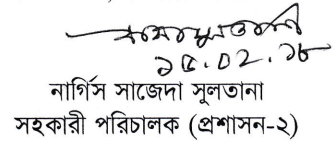 ১৫.০২.১৮
নার্গিস সাজেদা সুলতানা
সহকারী পরিচালক (প্রশাসন-২)